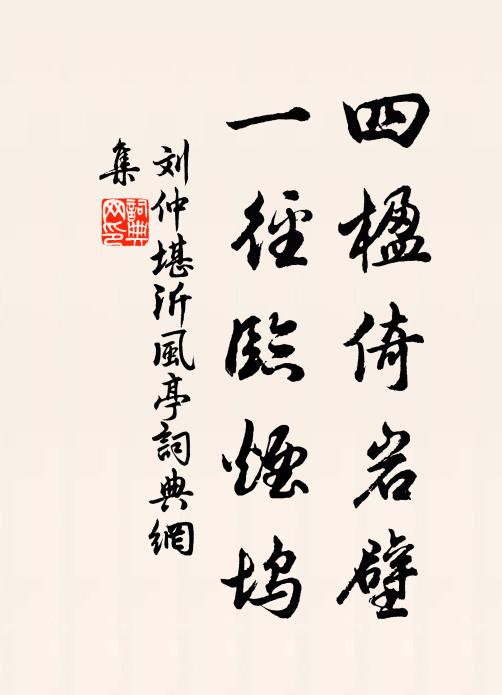 四楹倚岩壁
一径臨煙坞
刘仲堪沂風亭詞典網
集
詞典
网印